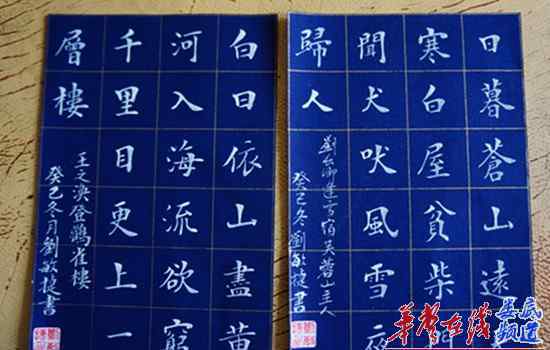 日暮蒼山遠
寒白屋貧柴
聞犬吠風雪夜
歸人
劉長卿逢雪宿芙蓉山主人
癸巳冬劉敏捷書
白日依山盡黃
河入海流欲窮
千里目更上一
層樓
王之渙登鸛雀樓
癸巳冬月劉敏捷書
华声在线
娄底
频道